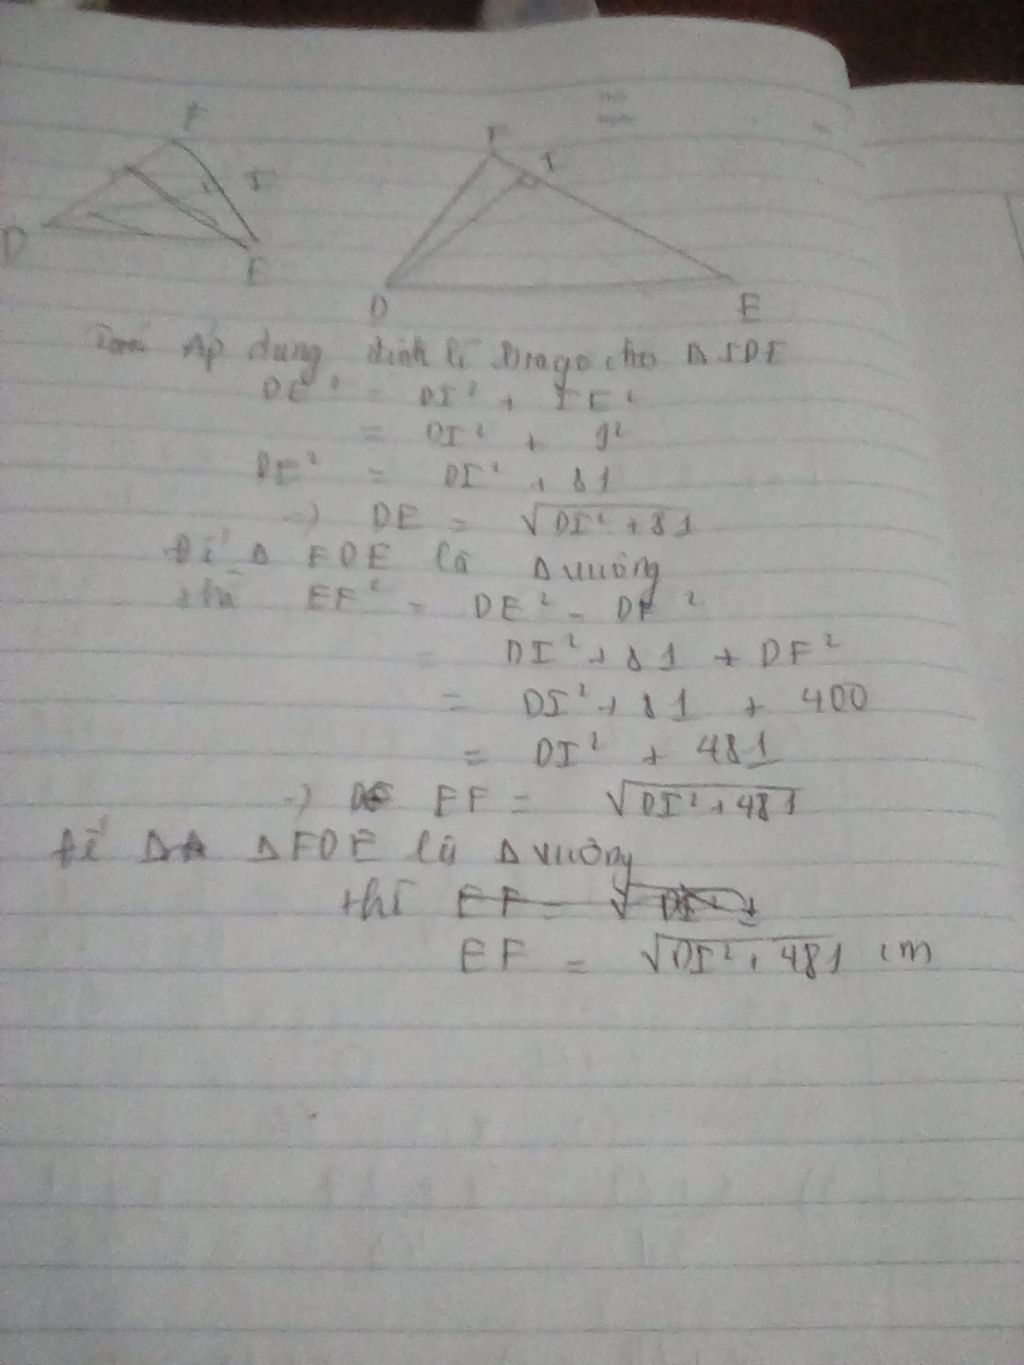 F
I
D
E
F
I
D
E
Áp dụng định lí Pitago cho Δ IDE
DE² = DI² + IE²
= DI² + 9²
DE² = DI² + 81
=> DE = √DI² + 81
Để Δ FDE là Δ vuông
thì EF² = DE² - DF²
= DI² + 81 + DF²
= DI² + 81 + 400
= DI² + 481
=> EF = √DI² + 481
Để Δ FDE là Δ vuông
thì EF = √DI² +
EF = √DI² + 481 cm